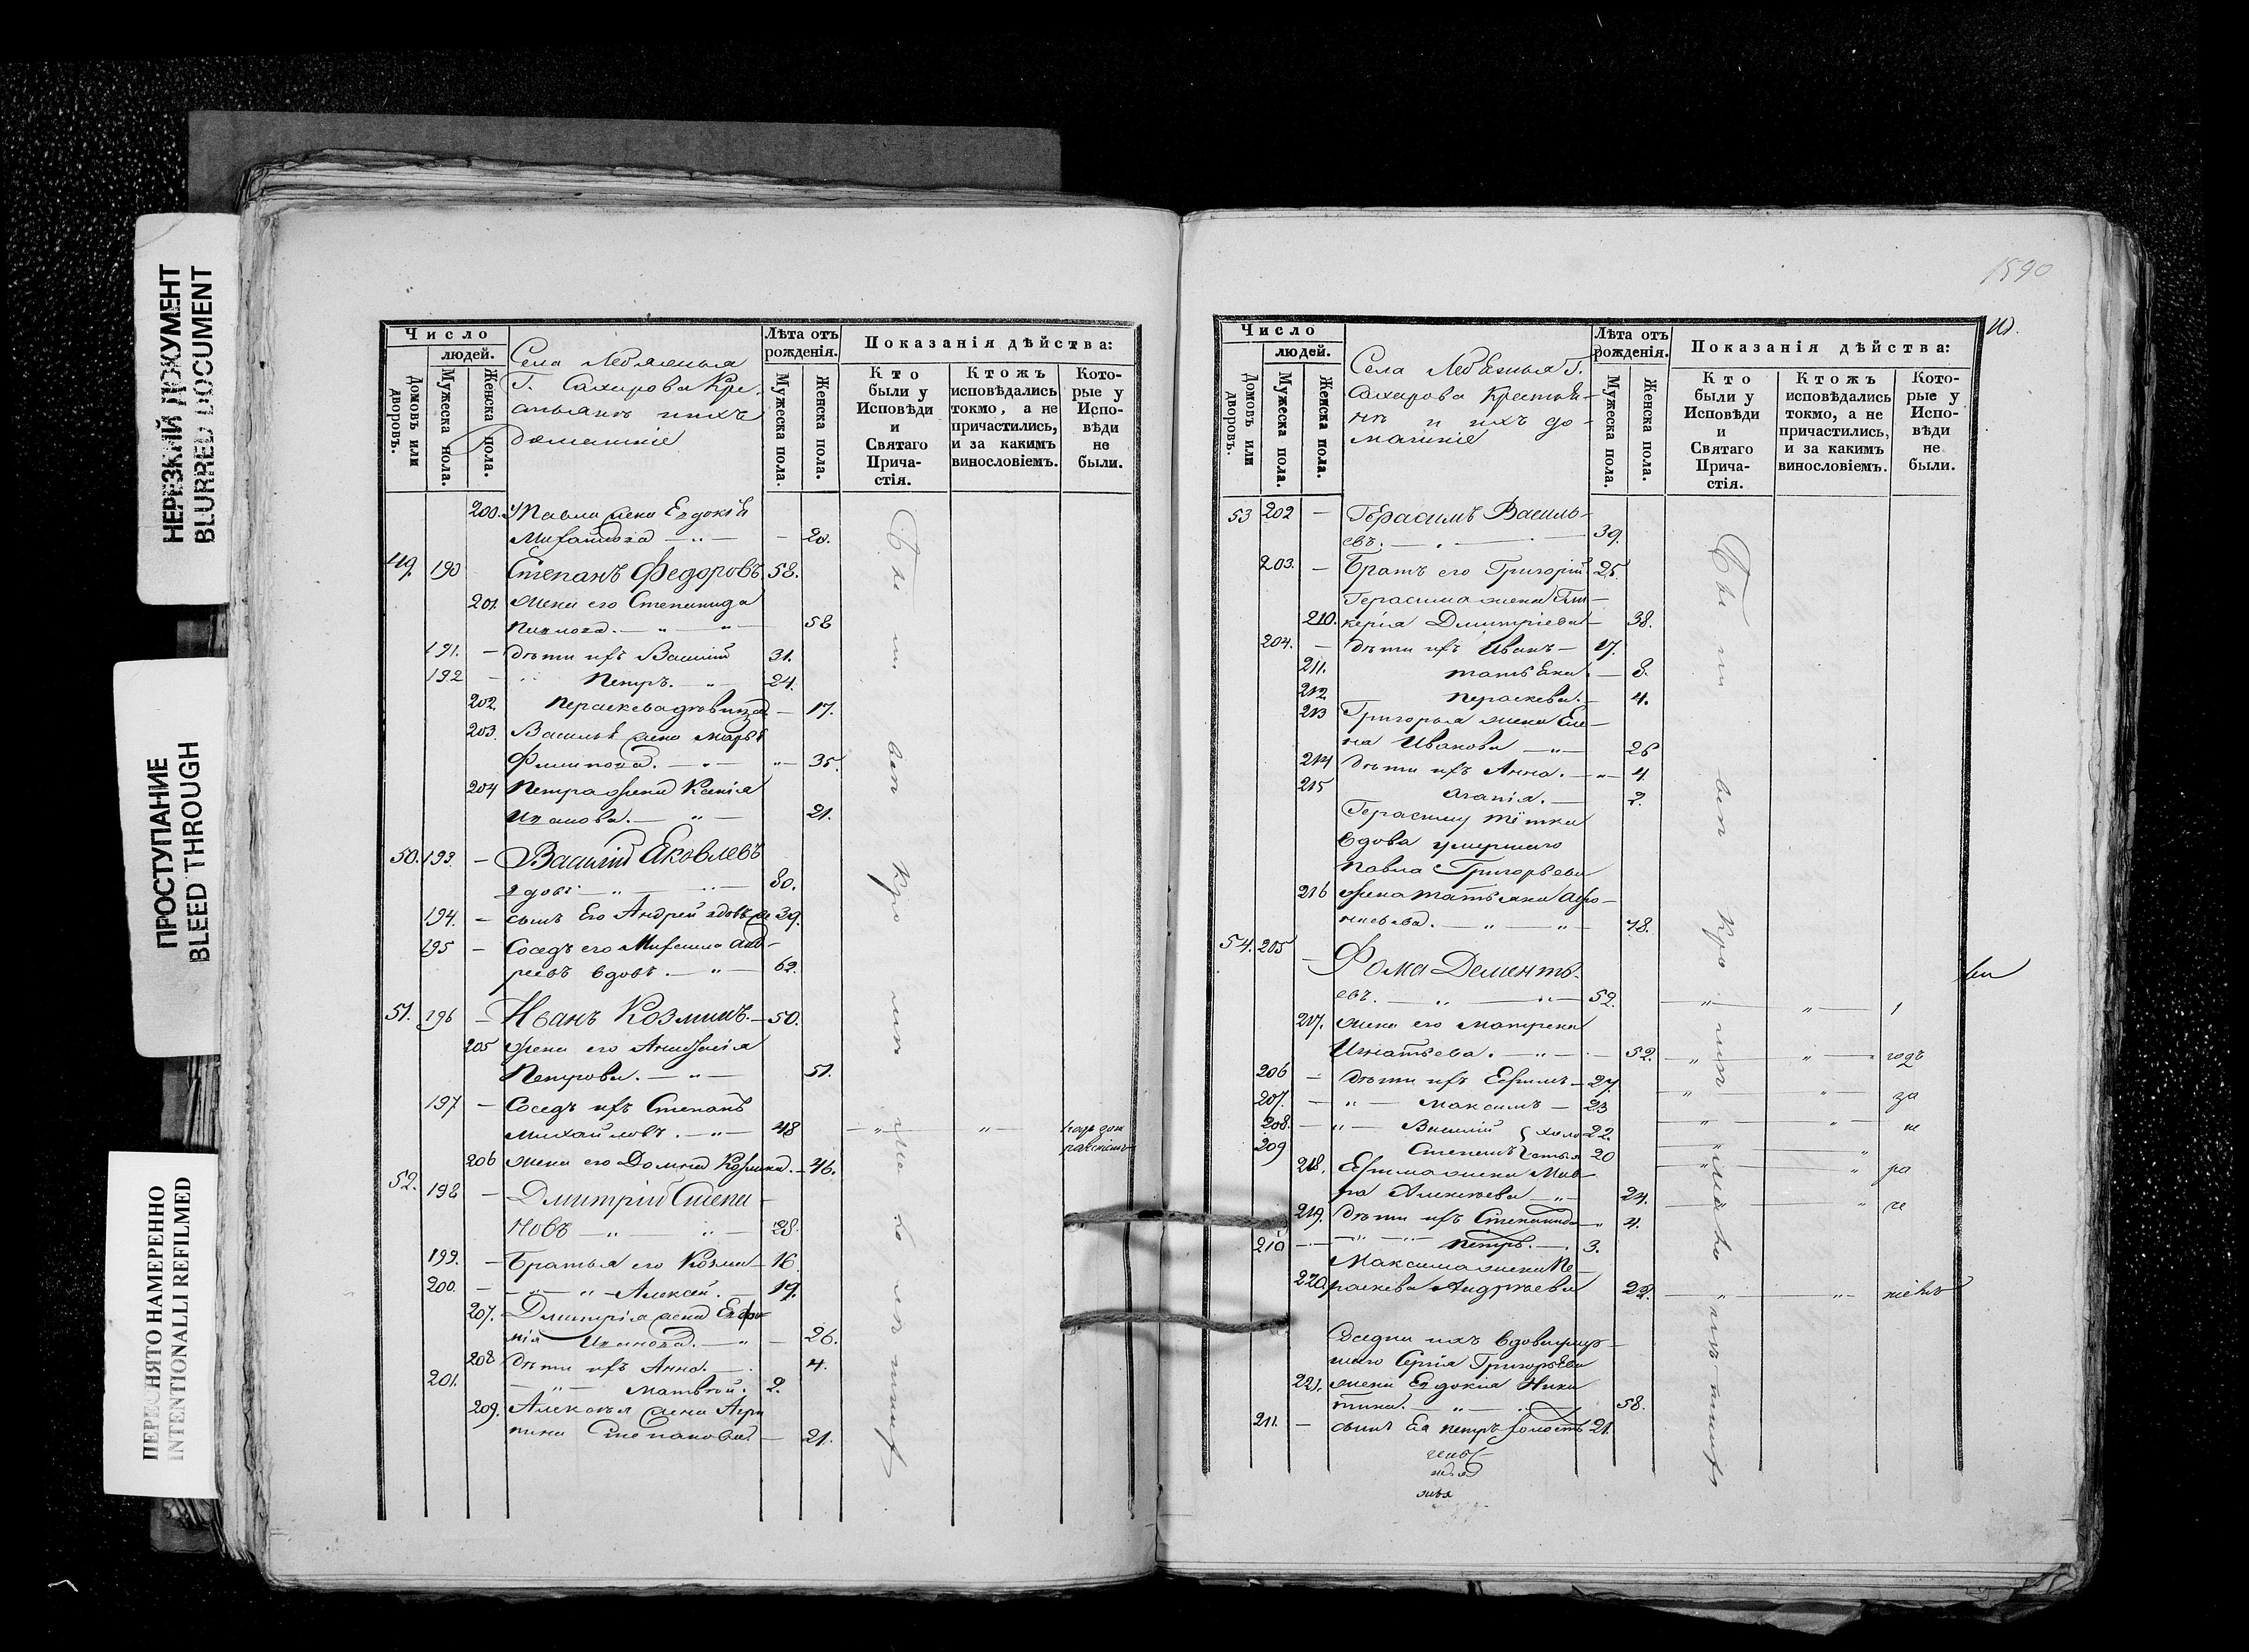 НЕРЕЗКИЙ ДОКУМЕНТ
BLURRED DOCUMENT
ПРОСТУПАНИЕ
BLEED THROUGH
ПЕРЕСНЯТО НАМЕРЕННО
INTENTIONALLI REFILMED
Число
людей.
Домовъ или дворовъ.
Мужеска пола.
Женска пола.
Села
Г. Сахарова Кре-
стьянъ ихъ
домашніе
Лѣта отъ рожденія.
Мужеска пола.
Женска пола.
Показанія дѣйства:
Кто были у Исповѣди и Святаго Прича-стія.
Ктожъ исповѣдались токмо, а не причастились, и за какимъ винословіемъ.
Кото-рые у Испо-вѣди не были.
200. Павла жена Евдокія
Михайлова 20.
49. 190 Степанъ Федоровъ 58.
201. жена его Степанида
Павлова. 58
191. — дѣти ихъ Василій 31.
192 — Петръ. 24.
202. Параскева девица — 17.
203. Василья жена Марья
Филипова. 35.
204 Петра жена Ксенія
Иванова. 21.
50. 193. — Василій Яковлевъ
вдовъ 80.
194. — сынъ Его Андрей вдовъ 39.
195 — Соседъ его Михаила Анд-
реевъ вдовъ. 62.
51. 196 — Иванъ Козминъ. — 50.
205 жена его Анастасія
Петрова. 51.
197 — Соседъ ихъ Степанъ
Михайловъ. 48
206 жена его Домна Козмина. — 46.
52. 198 — Дмитрій Степа-
новъ 28.
199. — Братья его Козма — 16
200. — Алексей. — 19.
207. Дмитрія жена Евфи-
мія Иванова. — 26.
208 дѣти ихъ Анна. 4.
201. Матвей. 2.
209. Алексея жена Агри
пина Степанова. — 21.
1590
Число
людей.
Домовъ или дворовъ.
Мужеска пола.
Женска пола.
Села Г.
Сахарова Крестья-
нъ и ихъ до-
машніе
Лѣта отъ рожденія.
Мужеска пола.
Женска пола.
Показанія дѣйства:
Кто были у Исповѣди и Святаго Прича-стія.
Ктожъ исповѣдались токмо, а не причастились, и за какимъ винословіемъ.
Кото-рые у Испо-вѣди не были.
53 202 — Герасимъ Василь-
евъ. 39.
203. — Братъ его Григорій 25.
Герасима жена Гли-
210. керія Дмитріева — 38.
204. — дѣти ихъ Иванъ — 17.
211. татьяна. — 8.
212 Параскева. — 4.
213 Григорья жена Еле-
на Иванова 26
214 дѣти ихъ Анна. 4.
215 Агапія. 2.
Герасиму тётка
вдова умершаго
Павла Григорьева
216 жена татьяна Афо-
насьева. 78.
54. 205 — Фома Дементь-
евъ. 52. 1
217. жена его Матрена
Игнатьева. 52. годъ
206 — дѣти ихъ Ефимъ — 27. за
207. — Максимъ — 23 не
208. — Василій холо 22.
209 Степанъ стыя 20 ра
218. Ефима жена Мав-
ра Алексеева 24.
219. дѣти ихъ Степанида 4.
210 Петръ. 3.
Максима жена Па-
220. раскева Андреева 22. ніемъ
Соседка ихъ вдова умер-
шаго Сергія Григорьева
221. жена Евдокія Ники
тина. 58.
211. — сынъ Ея Петръ холостъ 21.